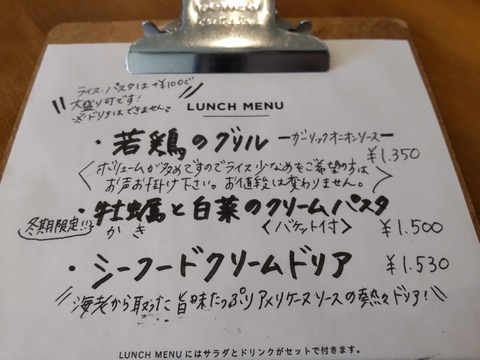 ライス・パスタは+¥100で
大盛り可です!
※ドリアはできません。
LUNCH MENU
・若鶏のグリル ーガーリックオニオンソースー
¥1.350
<ボリュームが多めですのでライス少なめをご希望の方は
お声お掛け下さい。お値段は変わりません。>
・牡蠣と白菜のクリームパスタ
冬期限定!!! かき <バケット付> ¥1.500
・シーフードクリームドリア ¥1.530
海老から取った旨味たっぷりアメリケーヌソースの熱々ドリア!
LUNCH MENU にはサラダとドリンクがセットで付きます。